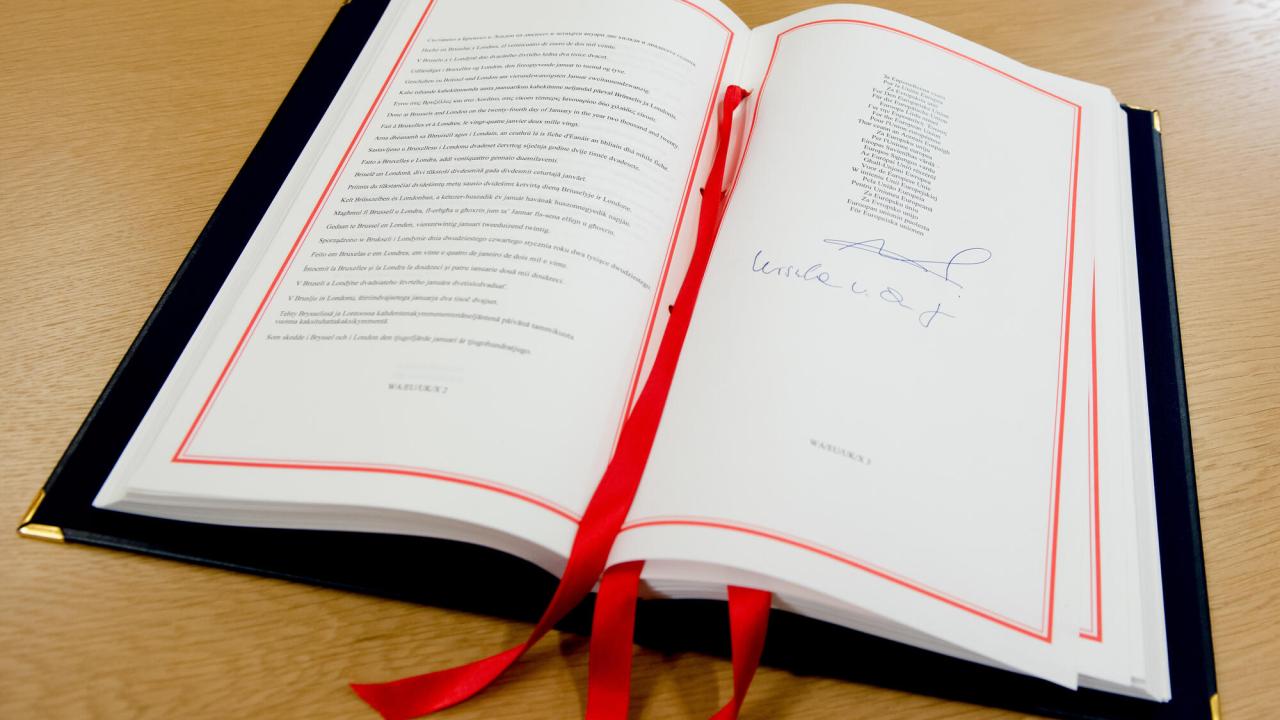 Съставено в Брюксел и Лондон на двадесет и четвърти януари две хиляди и двадесета година.
Hecho en Bruselas y Londres, el veinticuatro de enero de dos mil veinte.
V Bruselu a v Londýně dne dvacátého čtvrtého ledna dva tisíce dvacet.
Udfærdiget i Bruxelles og London, den fireogtyvende januar to tusind og tyve.
Geschehen zu Brüssel und London am vierundzwanzigsten Januar zweitausendzwanzig.
Kahe tuhande kahekümnenda aasta jaanuarikuu kahekümne neljandal päeval Brüsselis ja Londonis.
Έγινε στις Βρυξέλλες και στο Λονδίνο, στις είκοσι τέσσερις Ιανουαρίου δύο χιλιάδες είκοσι.
Done at Brussels and London on the twenty-fourth day of January in the year two thousand and twenty.
Fait à Bruxelles et à Londres, le vingt-quatre janvier deux mille vingt.
Arna dhéanamh sa Bhruiséil agus i Londain, an ceathrú lá is fiche d'Eanáir an bhliain dhá mhíle fiche.
Sastavljeno u Bruxellesu i Londonu dvadeset četvrtog siječnja godine dvije tisuće dvadesete.
Fatto a Bruxelles e Londra, addì ventiquattro gennaio duemilaventi.
Briselē un Londonā, divi tūkstoši divdesmitā gada divdesmit ceturtajā janvārī.
Priimta du tūkstančiai dvidešimtų metų sausio dvidešimt ketvirtą dieną Briuselyje ir Londone.
Kelt Brüsszelben és Londonban, a kétezer-huszadik év január havának huszonnegyedik napján.
Magħmul fi Brussell u Londra, fl-erbgħa u għoxrin jum ta' Jannar fis-sena elfejn u għoxrin.
Gedaan te Brussel en Londen, vierentwintig januari tweeduizend twintig.
Sporządzono w Brukseli i Londynie dnia dwudziestego czwartego stycznia roku dwa tysiące dwudziestego.
Feito em Bruxelas e em Londres, em vinte e quatro de janeiro de dois mil e vinte.
Întocmit la Bruxelles și la Londra la douăzeci și patru ianuarie două mii douăzeci.
V Bruseli a Londýne dvadsiateho štvrtého januára dvetisícdvadsať.
V Bruslju in Londonu, štiriindvajsetega januarja dva tisoč dvajset.
Tehty Brysselissä ja Lontoossa kahdentenakymmenentenäneljäntenä päivänä tammikuuta
vuonna kaksituhattakaksikymmentä.
Som skedde i Bryssel och i London den tjugofjärde januari år tjugohundratjugo.
WA/EU/UK/X 2
За Европейския съюз
Por la Unión Europea
Za Evropskou unii
For Den Europæiske Union
Für die Europäische Union
Euroopa Liidu nimel
Για την Ευρωπαϊκή Ένωση
For the European Union
Pour l'Union européenne
Thar ceann an Aontais Eorpaigh
Za Europsku uniju
Per l'Unione europea
Eiropas Savienības vārdā –
Europos Sąjungos vardu
Az Európai Unió részéről
Għall-Unjoni Ewropea
Voor de Europese Unie
W imieniu Unii Europejskiej
Pela União Europeia
Pentru Uniunea Europeană
Za Európsku úniu
Za Evropsko unijo
Euroopan unionin puolesta
För Europeiska unionen
Ursula v.
WA/EU/UK/X 3